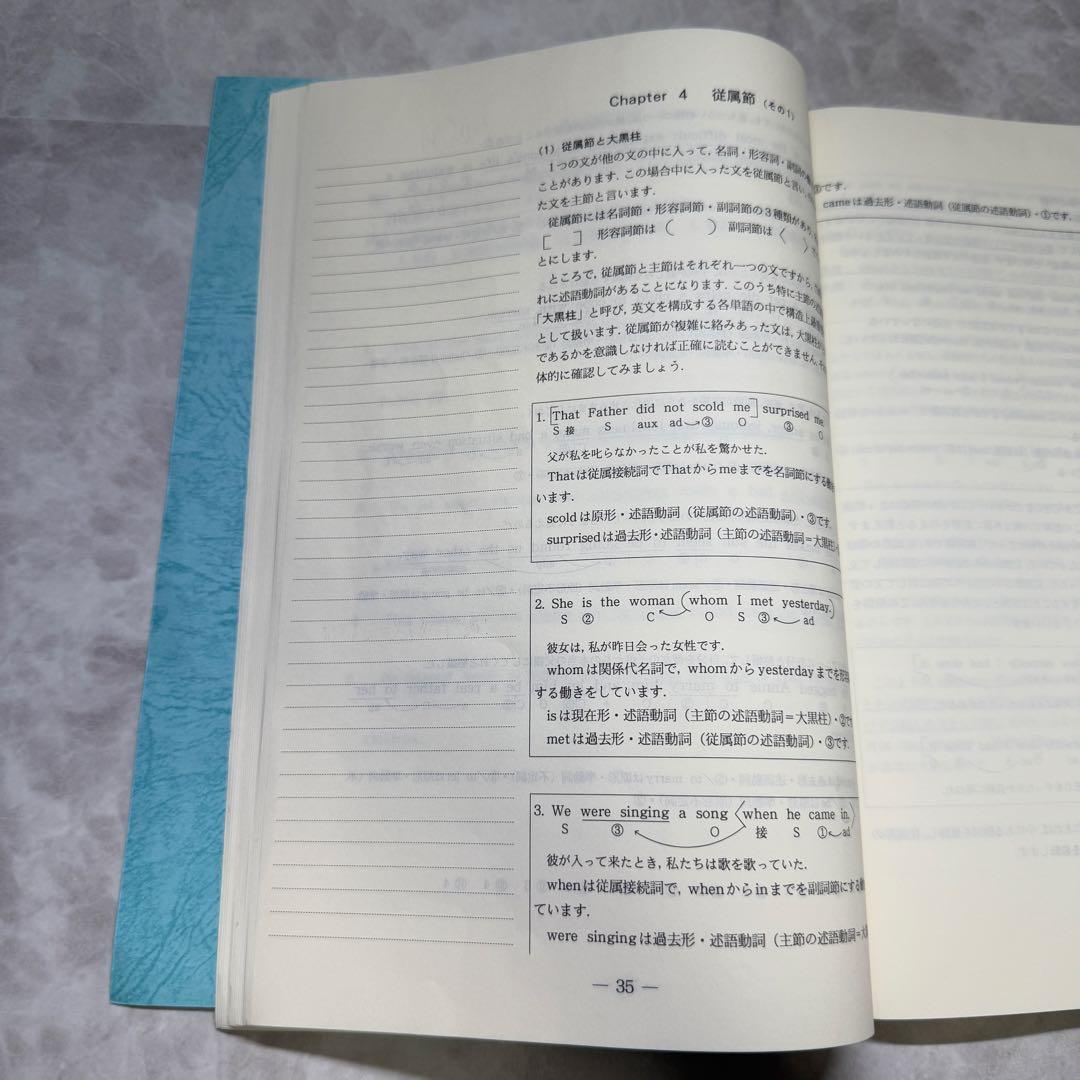 Chapter 4 従属節 (その1)
(1) 従属節と大黒柱
1つの文が他の文の中に入って，名詞・形容詞・副詞の
ことがあります．この場合中に入った文を従属節と言い，
た文を主節と言います．
従属節には名詞節・形容詞節・副詞節の3種類があり，
[ ] 形容詞節は ( ) 副詞節は 〈 〉で
とにします．
ところで，従属節と主節はそれぞれ一つの文ですから，
れに述語動詞があることになります．このうち特に主節の
「大黒柱」と呼び，英文を構成する各単語の中で構造上
として扱います．従属節が複雑に絡みあった文は，大黒柱が
であるかを意識しなければ正確に読むことができません．
体的に確認してみましょう．
1. [That Father did not scold me] surprised me
S 接 S aux ad→③ O ③ O
父が私を叱らなかったことが私を驚かせた．
Thatは従属接続詞でThatからmeまでを名詞節にする働き
います．
scoldは原形・述語動詞（従属節の述語動詞）・③です．
surprisedは過去形・述語動詞（主節の述語動詞＝大黒柱）・
2. She is the woman (whom I met yesterday.)
S ② C O S ③ ad
彼女は，私が昨日会った女性です．
whomは関係代名詞で，whomからyesterdayまでを形容
する働きをしています．
isは現在形・述語動詞（主節の述語動詞＝大黒柱）・②です
metは過去形・述語動詞（従属節の述語動詞）・③です．
3. We were singing a song 〈when he came in.〉
S ③ O 接 S ① ad
彼が入って来たとき，私たちは歌を歌っていた．
whenは従属接続詞で，whenからinまでを副詞節にする
ています．
were singingは過去形・述語動詞（主節の述語動詞＝大
— 35 —
です．
cameは過去形・述語動詞（従属節の述語動詞）・①です．